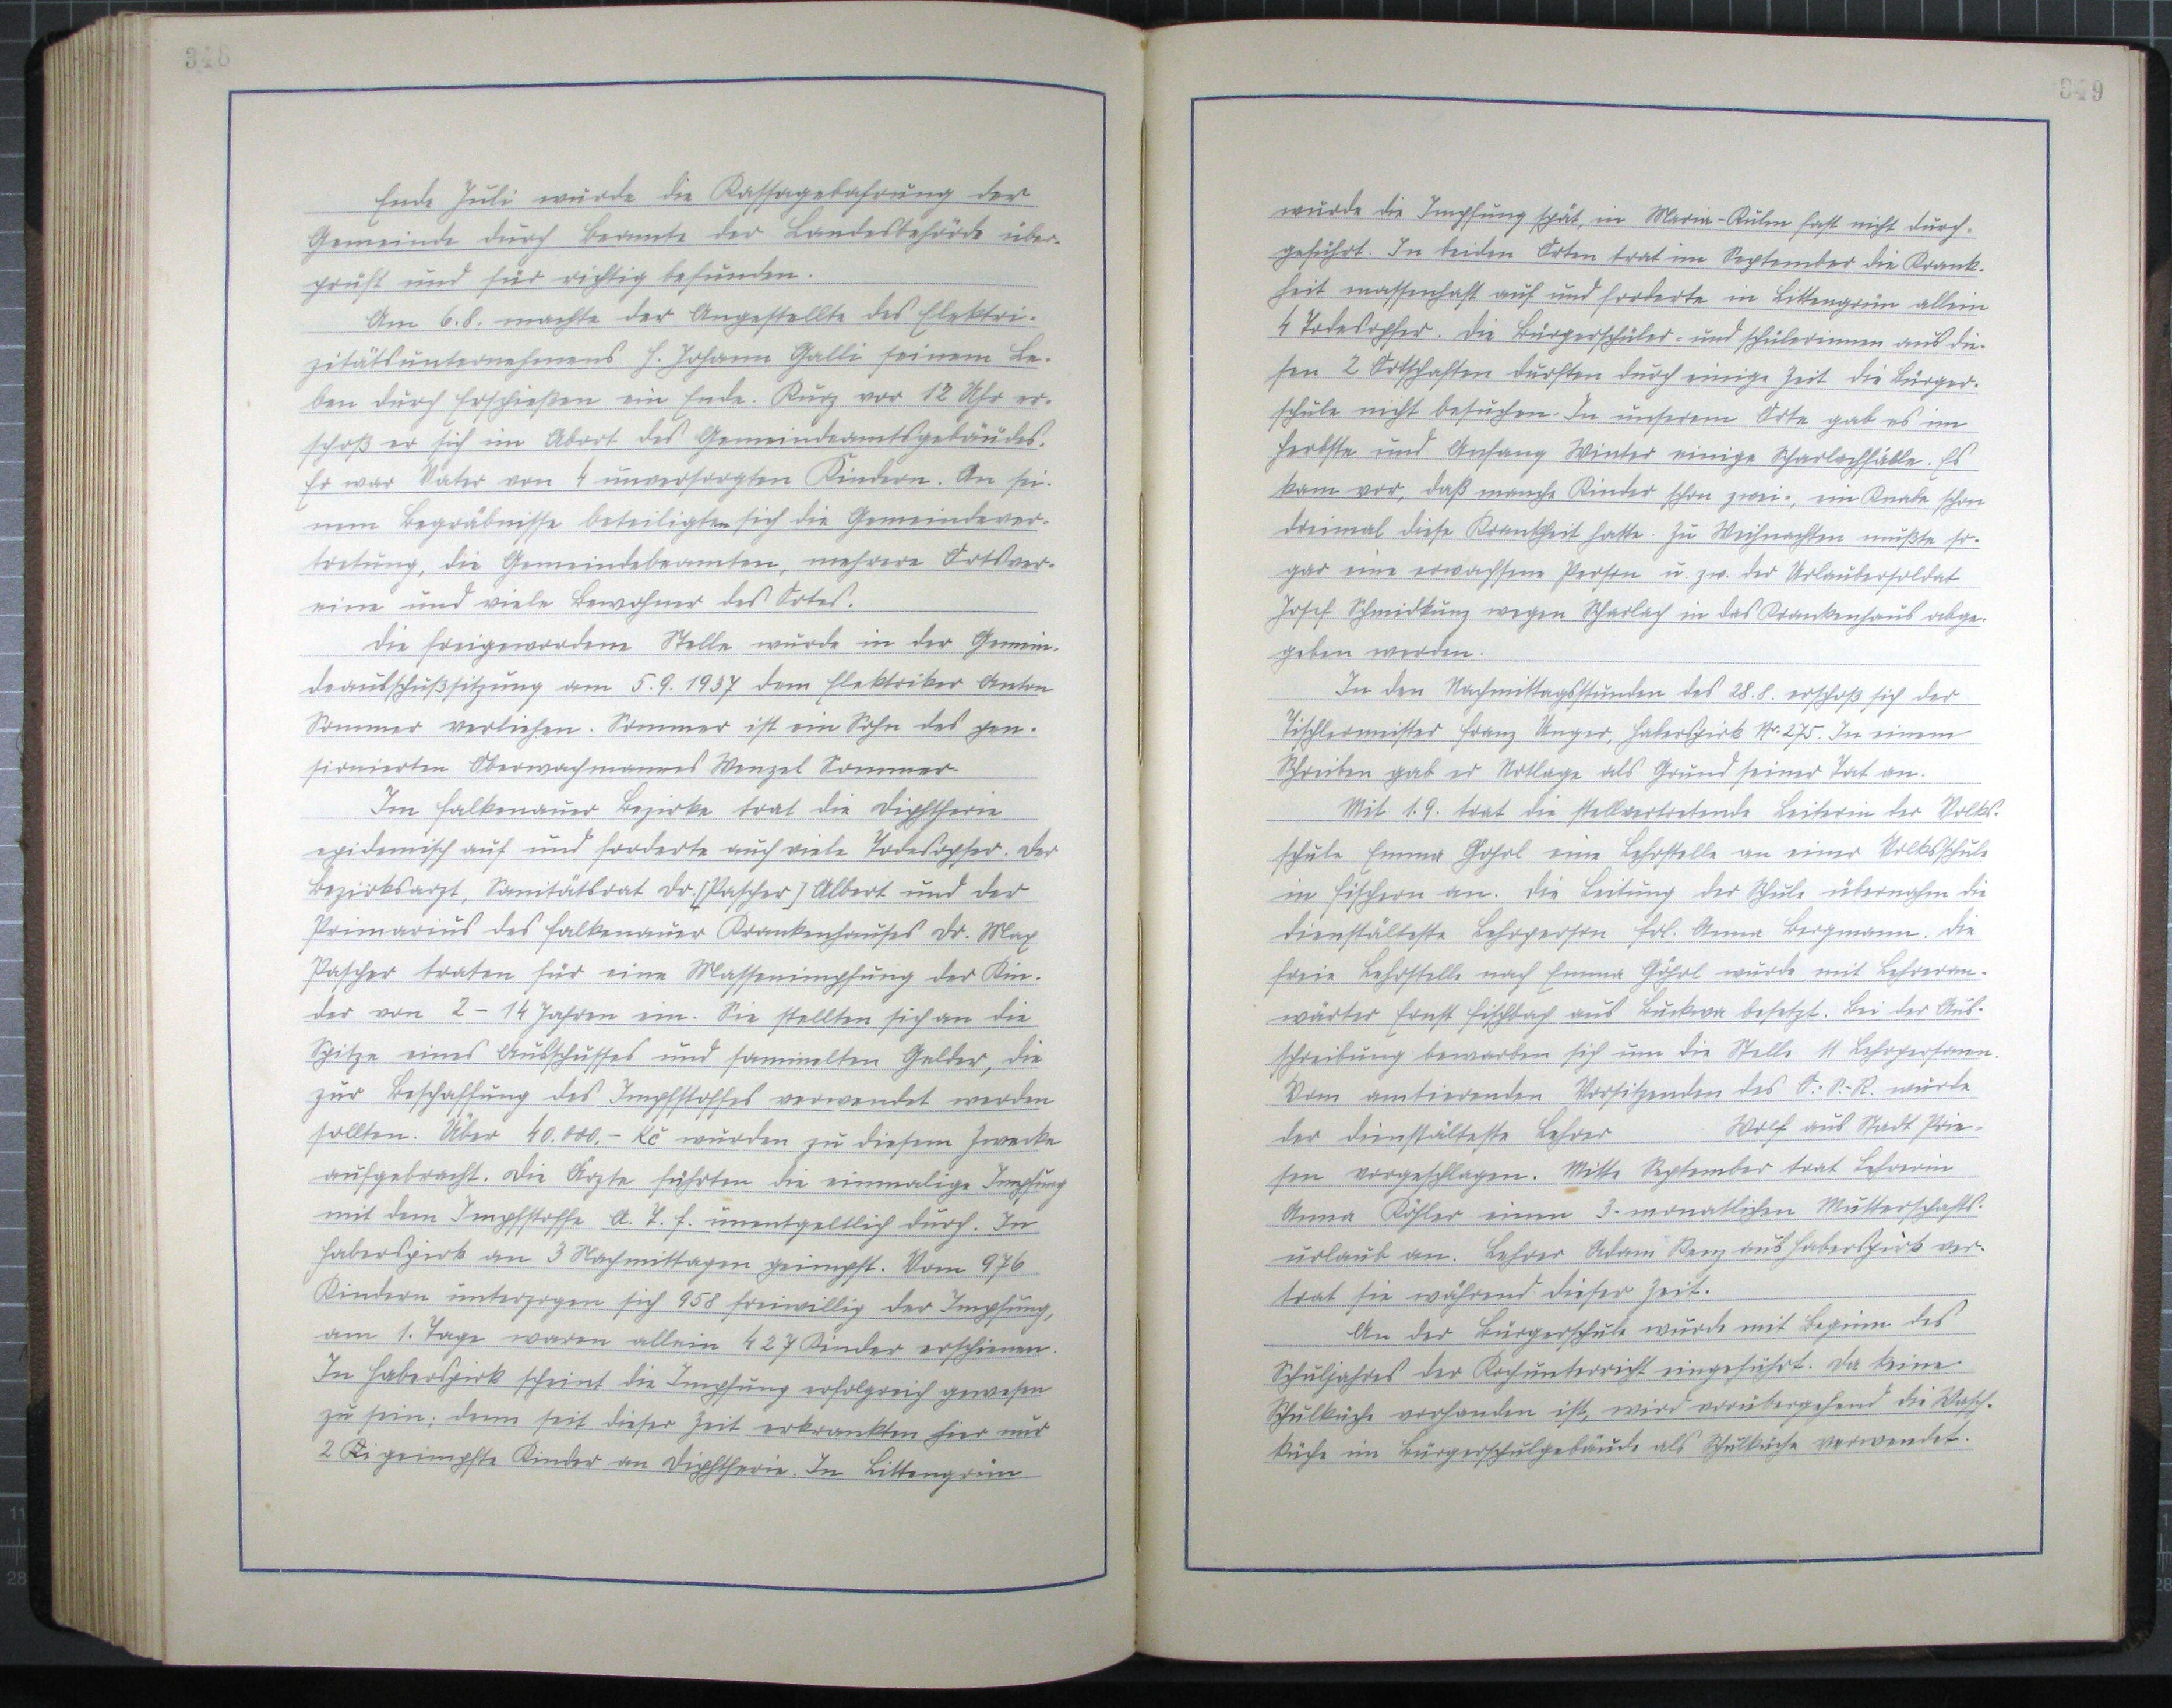 348
Ende Juli wurde die Kassagebahrung der
Gemeinde durch Beamte der Landesbehörde über-
prüft und für richtig befunden.
Am 6.8. machte der Angestellte des Elektri-
zitätsunternehmens H. Johann Galli seinem Le-
ben durch Erschießen ein Ende. Kurz vor 12 Uhr er-
schoß er sich im Abort des Gemeindeamtsgebäudes.
Er war Vater von 4 unversorgten Kindern. An sei-
nem Begräbnisse beteiligten sich die Gemeindever-
tretung, die Gemeindebeamten, mehrere Ortsver-
eine und viele Bewohner des Ortes.
Die freigewordene Stelle wurde in der Gemein-
deausschußsitzung am 5.9.1937 dem Elektriker Anton
Sommer verliehen. Sommer ist ein Sohn des pen-
sionierten Oberwachmannes Wenzel Sommer
Im Falkenauer Bezirke trat die Diphtherie
epidemisch auf und forderte auch viele Todesopfer. Der
Bezirksarzt, Sanitätsrat Dr. [Pascher] Albert und der
Primarius des Falkenauer Krankenhauses Dr. Max
Pascher traten für eine Massenimpfung der Kin-
der von 2 - 14 Jahren ein. Sie stellten sich an die
Spitze eines Ausschusses und sammelten Gelder, die
zur Beschaffung des Impfstoffes verwendet werden
sollten. Über 40.000.- Kč wurden zu diesem Zwecke
aufgebracht. Die Ärzte führten die einmalige Impfung
mit dem Impfstoffe A. T. F. unentgeltlich durch. In
Haberspirk an 3 Nachmittagen geimpft. Vom 976
Kindern unterzogen sich 958 freiwillig der Impfung,
am 1. Tage waren allein 427 Kinder erschienen.
In Haberspirk scheint die Impfung erfolgreich gewesen
zu sein; denn seit dieser Zeit erkrankten hier nur
2 Ki geimpfte Kinder an Diphtherie. In Littengrün
349
wurde die Impfung spät, in Maria-Kulm fast nicht durch-
geführt. In beiden Orten trat im September die Krank-
heit massenhaft auf und forderte in Littengrün allein
4 Todesopfer. Die Bürgerschüler- und schülerinnen aus die-
sen 2 Ortschaften durften durch einige Zeit die Bürger-
schule nicht besuchen. In unserem Orte gab es im
Herbste und Anfang Winter einige Scharlachfälle. Es
kam vor, daß manche Kinder schon zwei-, ein Knabe schon
dreimal diese Krankheit hatte. Zu Weihnachten mußte so-
gar eine erwachsene Person u. zw. der Urlaubersoldat
Josef Schmidkunz wegen Scharlach in das Krankenhaus abge-
geben werden.
In den Nachmittagsstunden des 28.8. erschoß sich der
Tischlermeister Franz Unger, Haberspirk Nr. 275. In einem
Schreiben gab er Notlage als Grund seiner Tat an.
Mit 1.9. trat die stellvertretende Leiterin der Volks-
schule Emma Göhrl eine Lehrstelle an einer Volksschule
in Fischern an. Die Leitung der Schule übernahm die
dienstälteste Lehrperson Frl. Anna Bergmann. Die
freie Lehrstelle nach Emma Göhrl wurde mit Lehreran-
wärter Ernst Fischbach aus Buckwa besetzt. Bei der Aus-
schreibung bewarben sich um die Stelle 11 Lehrpersonen.
Vom amtierenden Vorsitzenden des O.-S.-R. wurde
der dienstälteste Lehrer Wolf aus Stadt Prie-
sen vorgeschlagen. Mitte September trat Lehrerin
Anna Köhler einen 3-monatlichen Mutterschafts-
urlaub an. Lehrer Adam Renz aus Haberspirk ver-
trat sie während dieser Zeit.
An der Bürgerschule wurde mit Beginn des
Schuljahres der Kochunterricht eingeführt. Da keine
Schulküche vorhanden ist, wird vorübergehend die Wasch-
küche im Bürgerschulgebäude als Schulküche verwendet.